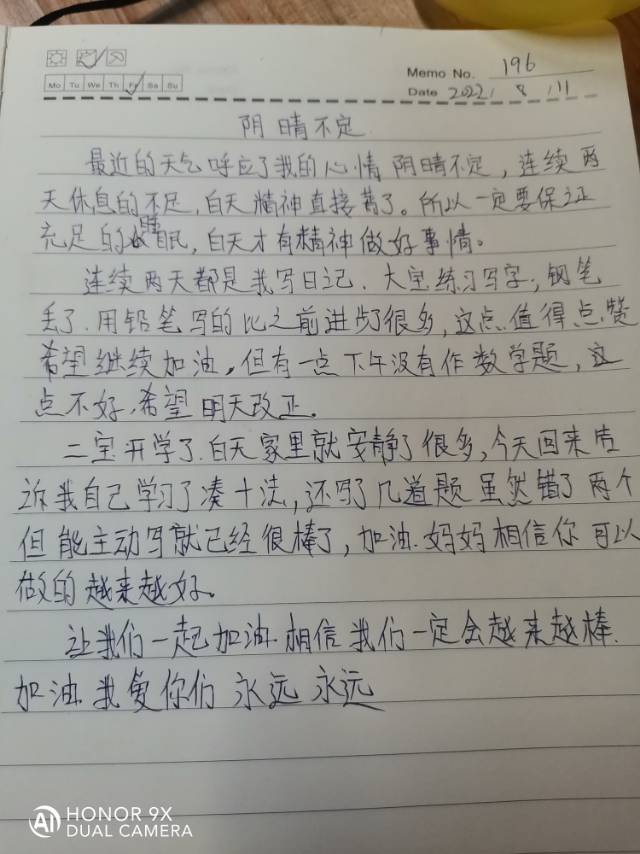 Mo Tu We Th Fr Sa Su
Memo No. 196
Date 2022 / 8 / 11
阴晴不定
最近的天气呼应了我的心情 阴晴不定,连续两
天休息的不足,白天精神直接蔫了。所以一定要保证
充足的睡眠,白天才有精神做好事情。
连续两天都是我写日记.大宝练习写字,钢笔
丢了.用铅笔写的比之前进步了很多,这点值得点赞
希望继续加油,但有一点下午没有作数学题,这
点不好,希望明天改正.
二宝开学了.白天家里就安静了很多,今天回来告
诉我自己学习了凑十法,还写了几道题 虽然错了两个
但能主动写就已经很棒了,加油.妈妈相信你可以
做的越来越好。
让我们一起加油.相信我们一定会越来越棒.
加油 我爱你们 永远 永远
AI HONOR 9X
DUAL CAMERA